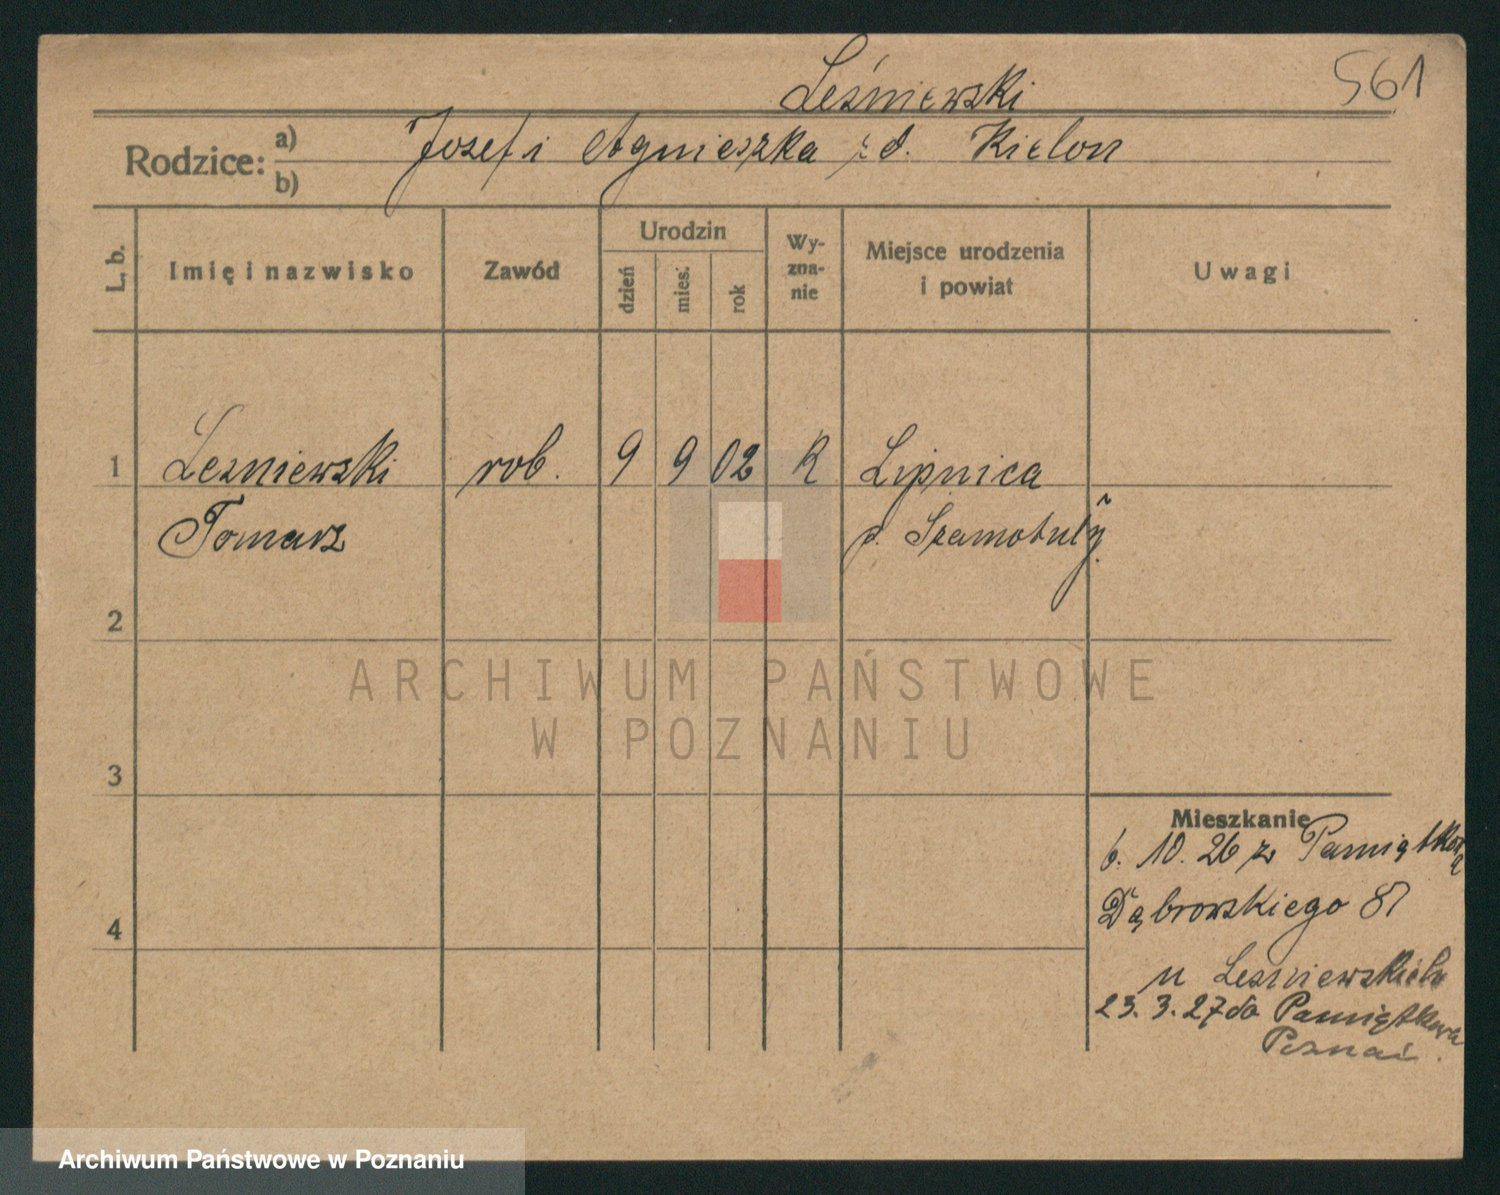 Leśniewski
561
Rodzice: a) Jozef i Agnieszka zd. Kielon
b)
L. b.
Imię i nazwisko
Zawód
Urodzin
dzień
mies.
rok
Wy-
zna-
nie
Miejsce urodzenia
i powiat
Uwagi
1 Lesniewski rob. 9 9 02 R Lipnica
Tomasz p. Szamotuły
2
ARCHIWUM PAŃSTWOWE
W POZNANIU
3
Mieszkanie
6. 10. 26 z Pamiątkowa
Dąbrowskiego 87
4
u Lesniewskich
23. 3. 27 do Pamiątkowa
Poznań
Archiwum Państwowe w Poznaniu